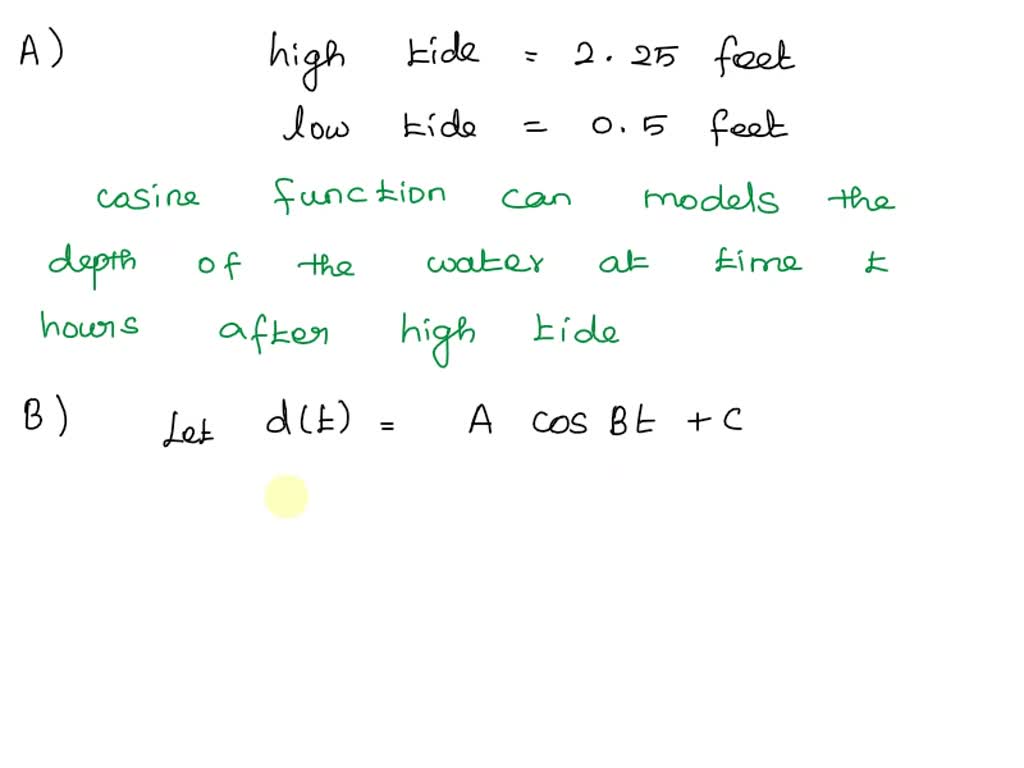 A) high tide = 2.25 feet
low tide = 0.5 feet
cosine function can models the
depth of the water at time t
hours after high tide
B) Let d(t) = A cos Bt + C